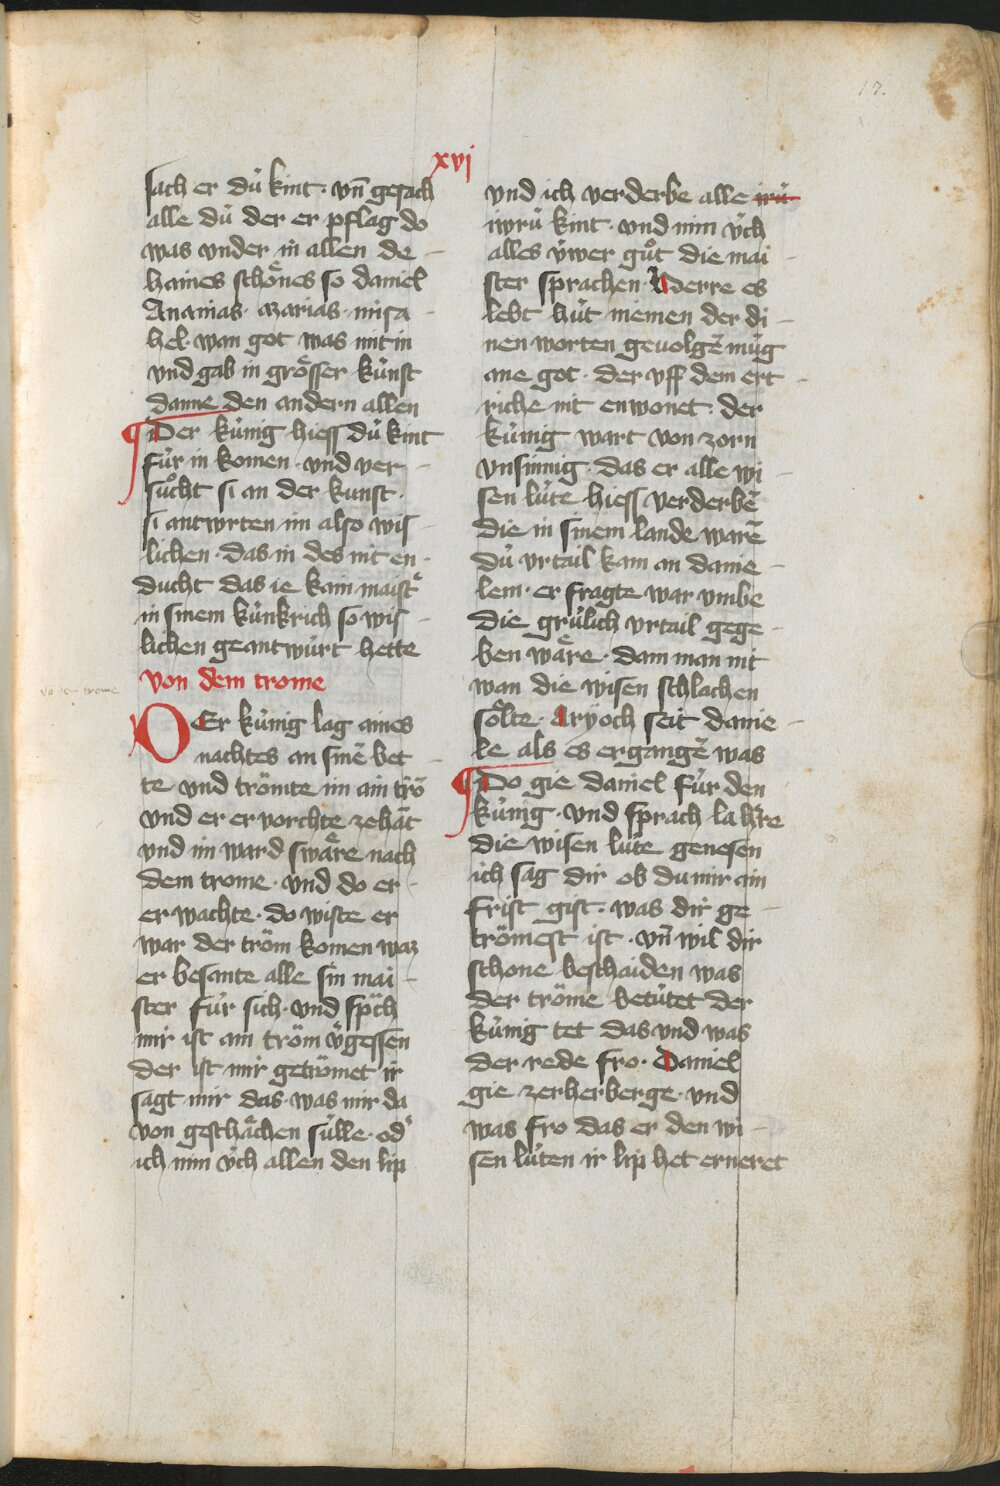 17.
xvi
sach er dú kint. vn̄ gesach
alle dú der er pflag do
was vnder in allen de-
haines schoͤnes so daniel
Ananias. azarias. misa-
hel. wan got was mit in
vnd gab in groͤsser kúnst
danne den andern allen
¶ Der kúnig hiess dú kint
fúr in komen. vnd ver-
suͦcht si an der kunst.
si antwrten im also wis-
lichen. das in des nit en-
ducht das ie kain maistˀ
in sinem kúnkrich so wis-
lichen geantwúrt hette
von dem trome
vo dem trome
DEr kúnig lag aines
nachtes an sinē bet-
te vnd trömte im ain trō
vnd er er vorchte zehāt
vnd im ward swaͤre nach
dem trome. vnd do er-
er wachte. do wiste er
war der tröm komen waz
er besante alle sin mai-
ster fúr sich. vnd sp̄ch
mir ist ain tröm v̓gessen
der ist mir getrömet ir
sagt mir das. was mir da
von geschaͤchen súlle. odˀ
ich nim úch allen den lip
vnd ich verderbe alle irú
iwrú kint. vnd nim úch
alles úwer guͦt die mai-
ster sprachen. Herre es
lebt hút niemen der di-
nen worten geuolgē múg
ane got. der vff dem ert-
riche nit enwonet. der
kúnig wart von zorn
vnsinnig. das er alle wi-
sen lúte hiess verderbē
die in sinem lande warē
dú vrtail kam an danie-
lem. er fragte war vmbe
die grúlich vrtail gege-
ben waͤre. dam man nit
wan die wisen schlachen
soͤlte. Aryoch seit danie-
le als es ergangē was
¶ Do gie daniel fúr den
kúnig. vnd sprach la h̄re
die wisen lúte genesen
ich sag dir ob du mir ain
frist gist. was dir ge-
trömest ist. vn̄ wil dir
schone beschaiden was
der tröme betútet der
kúnig tet das vnd was
der rede fro. Daniel
gie zerherberge. vnd
was fro das er den wi-
sen lúten ir lip het erneret